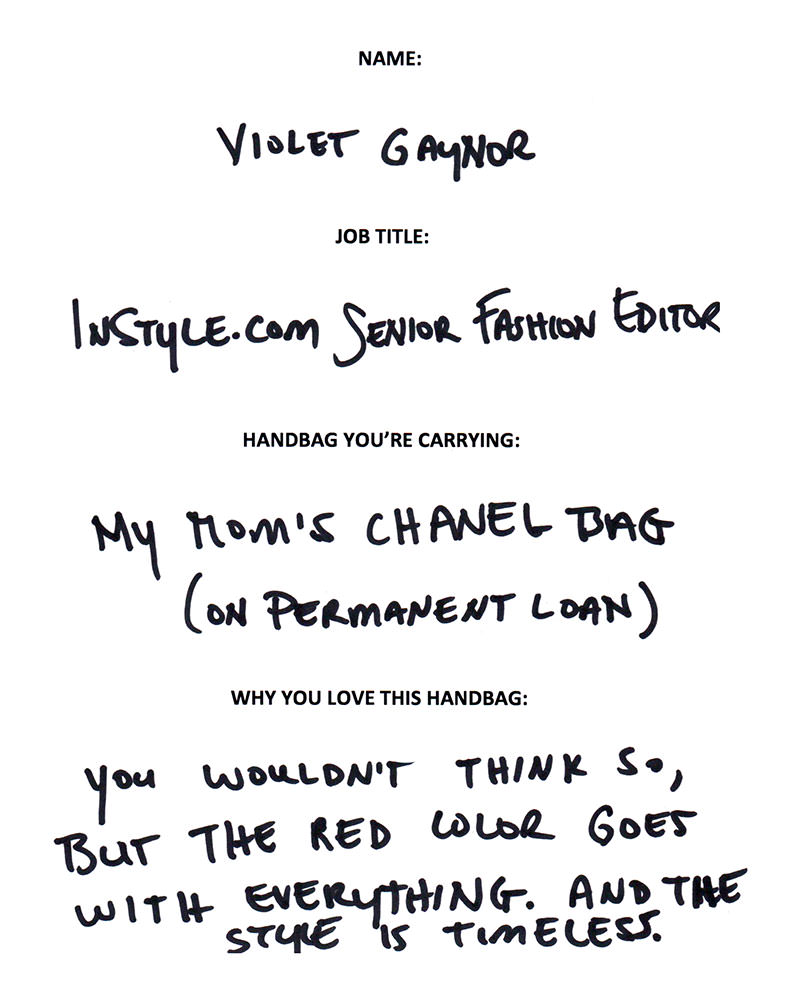 NAME:
VIOLET GAYNOR
JOB TITLE:
INSTYLE.COM SENIOR FASHION EDITOR
HANDBAG YOU'RE CARRYING:
MY MOM'S CHANEL BAG
(ON PERMANENT LOAN)
WHY YOU LOVE THIS HANDBAG:
YOU WOULDN'T THINK SO,
BUT THE RED COLOR GOES
WITH EVERYTHING. AND THE
STYLE IS TIMELESS.